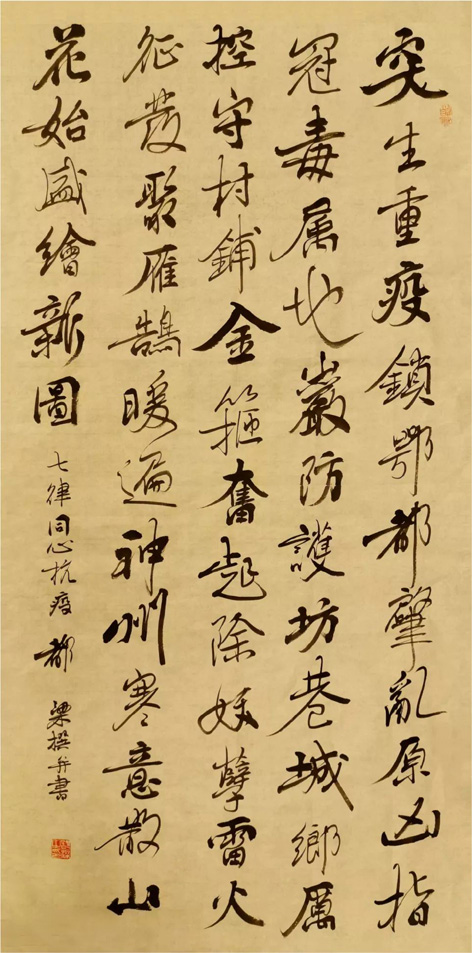 突生重疫鎖鄂都肇亂原凶指
冠毒属地嚴防護坊巷城鄉厲
控守村鋪金箍奮起除妖孽雷火
征發聚雁鵠暖遍神州寒意散山
花始盛繪新圖
七律同心抗疫 都梁撰并書